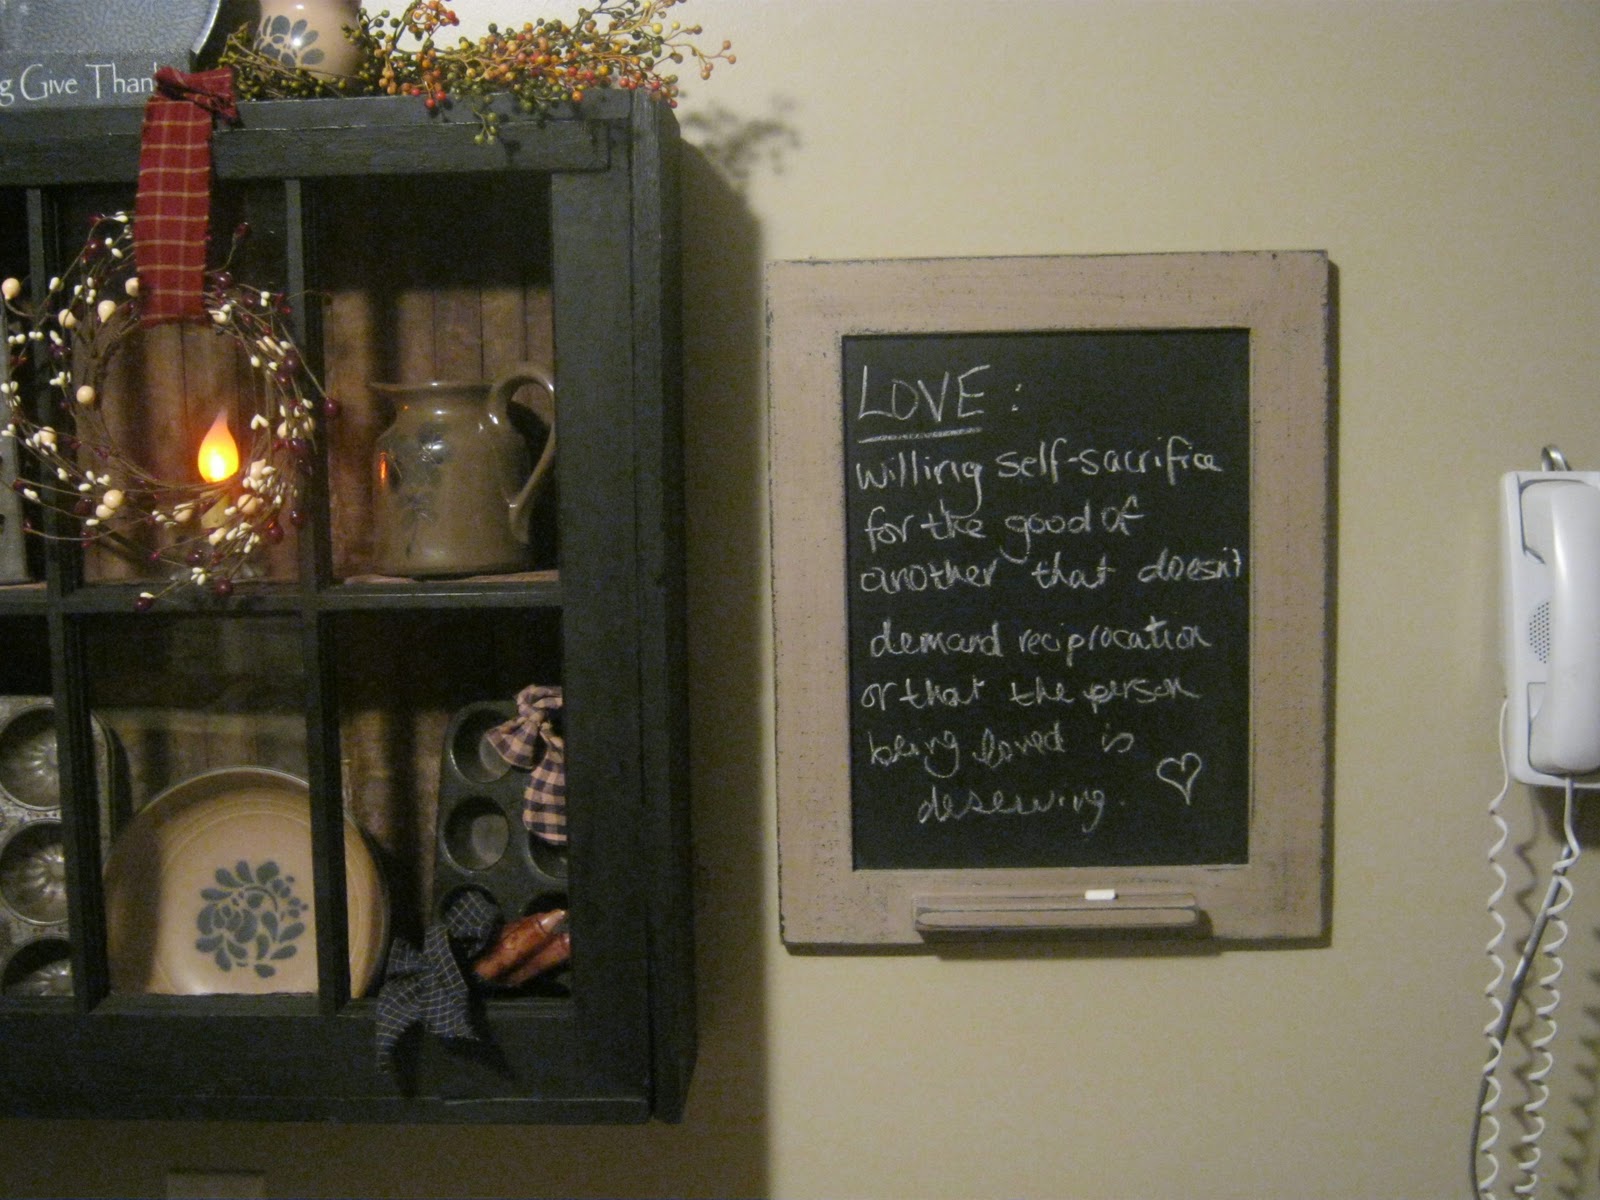 Give Thank
LOVE:
willing self-sacrifice
for the good of
another that doesn't
demand reciprocation
or that the person
being loved is
deserving.